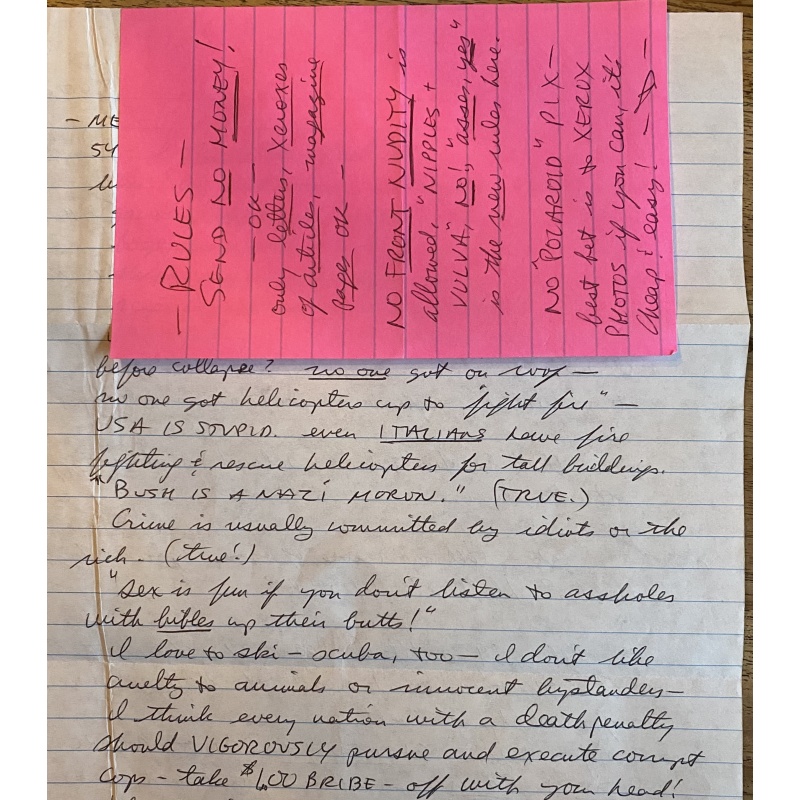 — RULES —
SEND NO MONEY!
— OK —
only letters, Xeroxes
of articles, magazine
pages OK —
NO FRONT NUDITY is
allowed, "NIPPLES +
VULVA", NO!, "asses, yes"
is the new rules here.
NO "POLAROID" PIX —
best bet is to XEROX
PHOTOS if you can, it's
cheap & easy! —
— ME
54
before collapse? no one got on roof —
no one got helicopters up to "fight fire" —
USA IS STUPID. even ITALIANS have fire
fighting & rescue helicopters for tall buildings.
"BUSH IS A NAZI MORON." (TRUE.)
Crime is usually committed by idiots or the
rich. (true!)
"sex is fun if you don't listen to assholes
with bibles up their butts!"
I love to ski — scuba, too — I don't like
cruelty to animals or innocent bystanders —
I think every nation with a death penalty
should VIGOROUSLY pursue and execute corrupt
cops — take $1.00 BRIBE — off with your head!